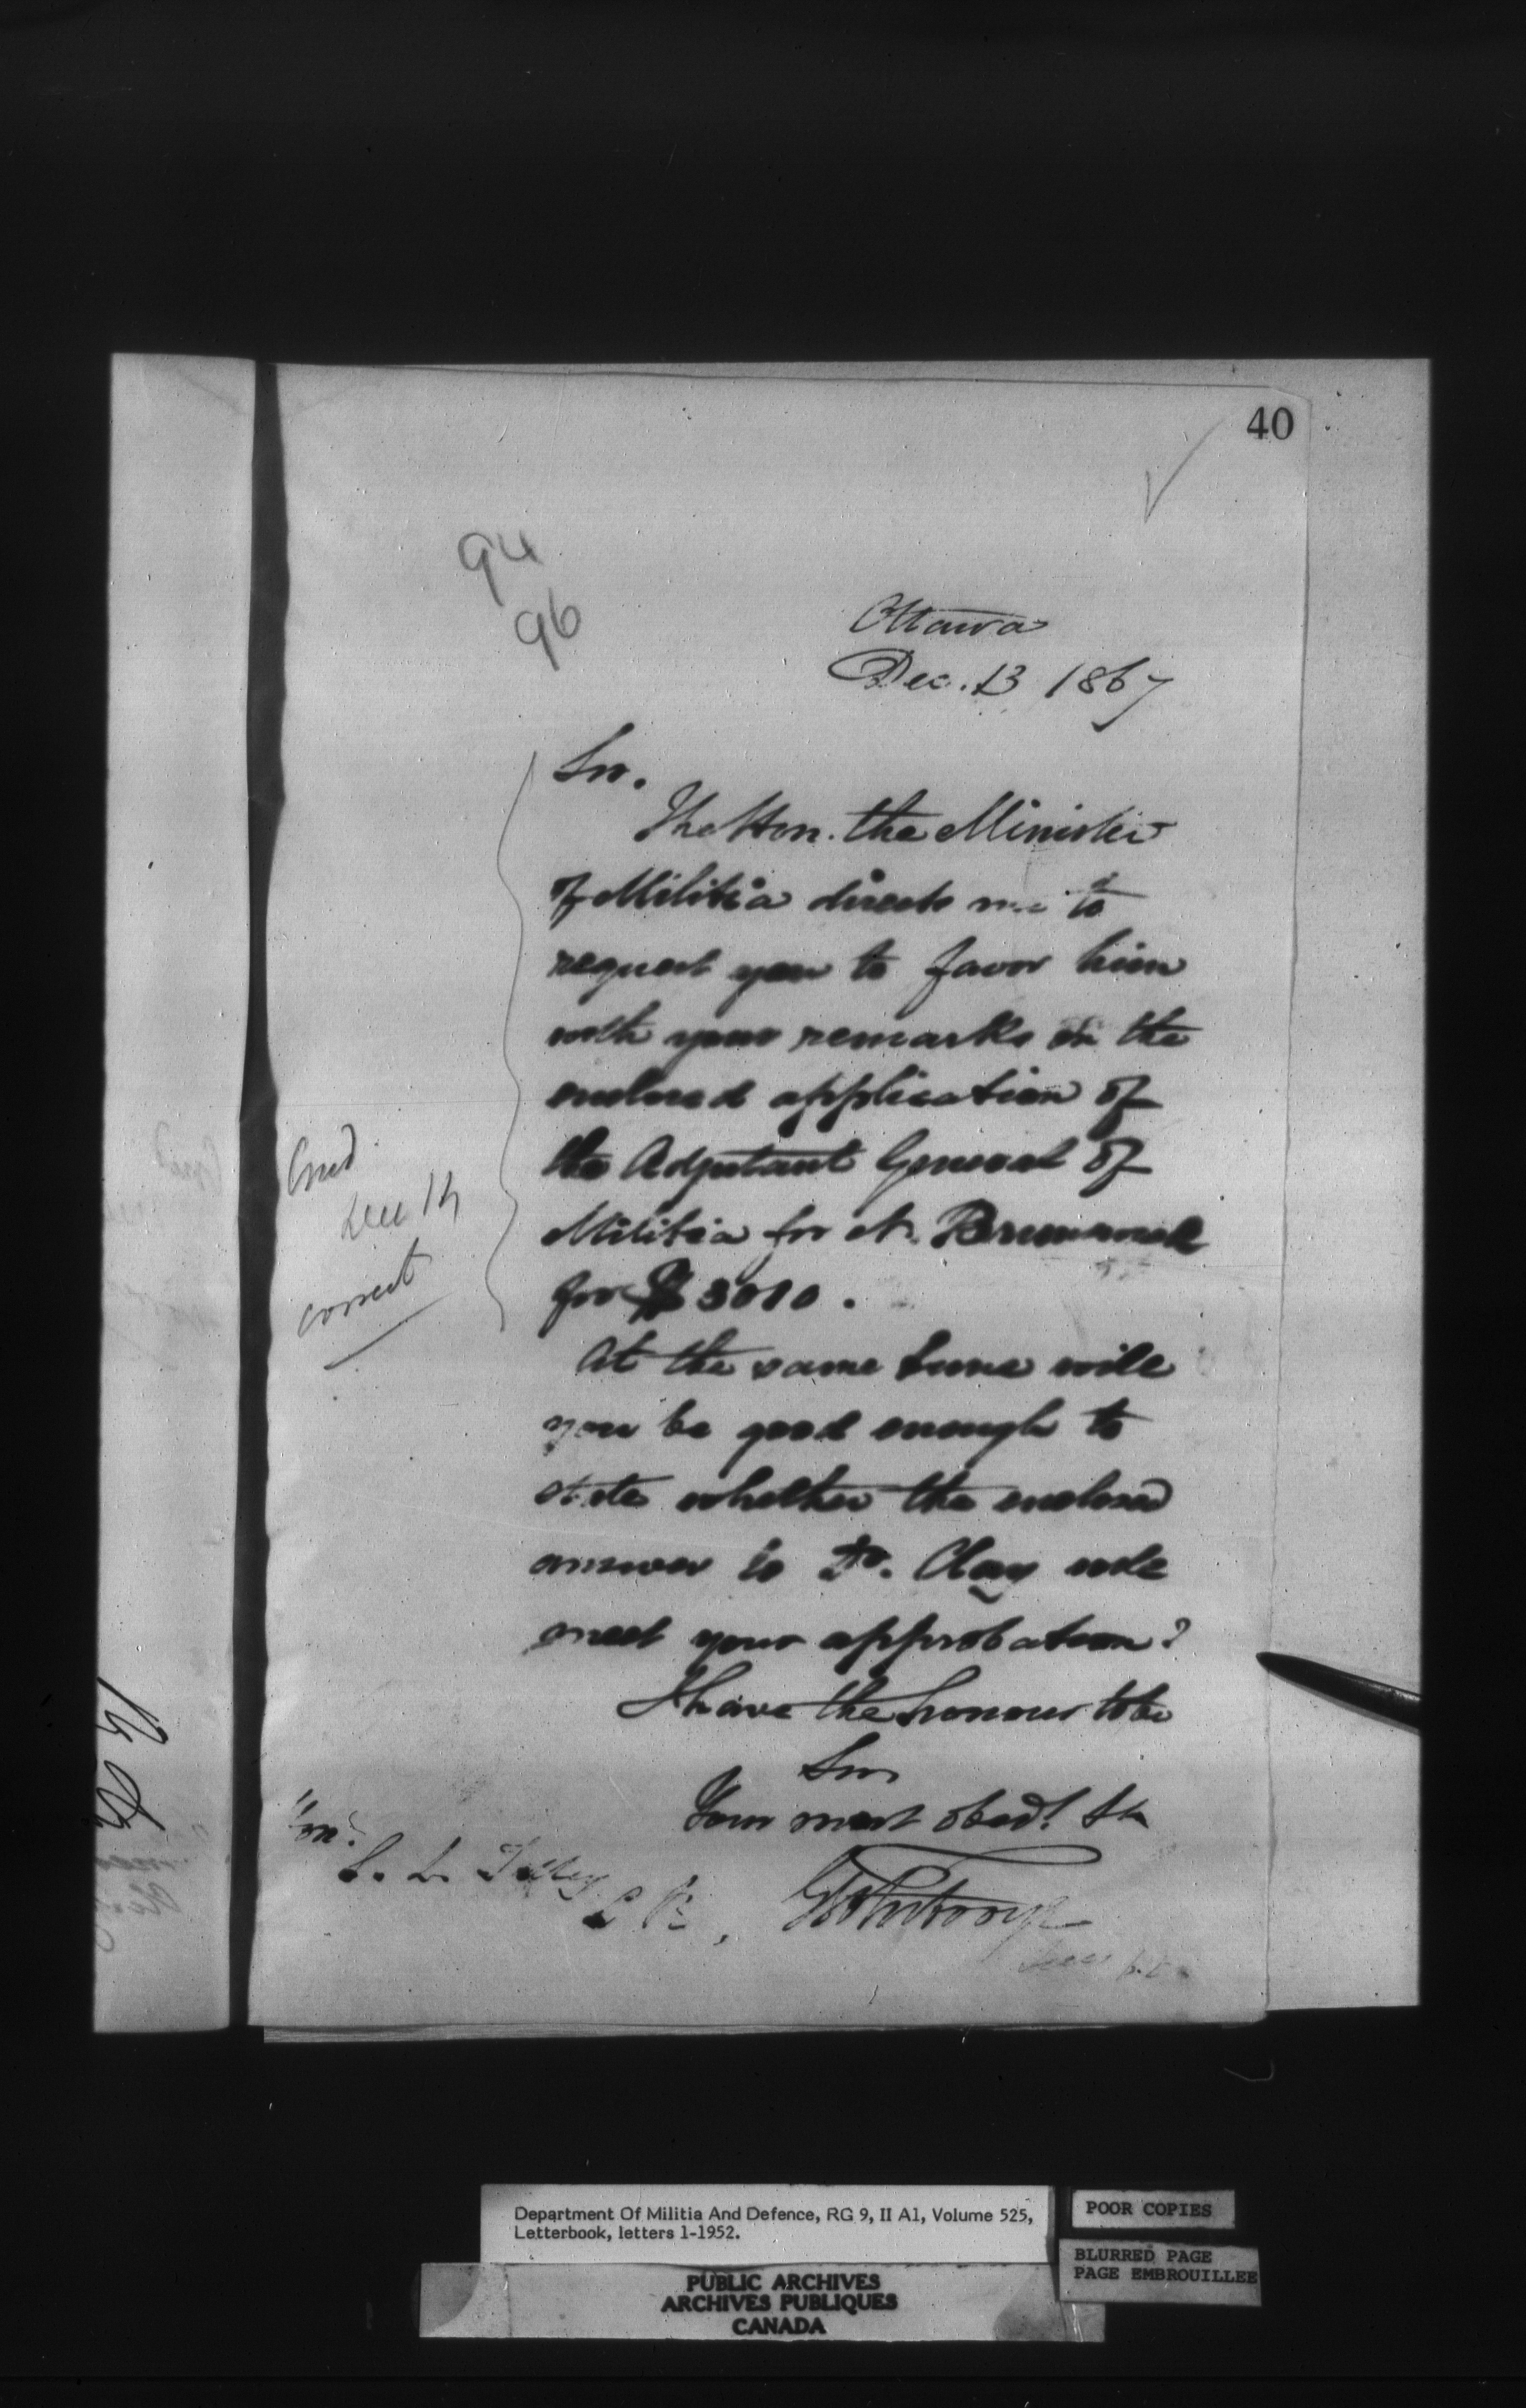 40
94
96
Ottawa
Dec. 13 1867
Sir.
The Hon. the Minister
of Militia directs me to
request you to favor him
with your remarks on the
enclosed application of
the Adjutant General of
Militia for N. Brunswick
for $3010.
At the same time will
you be good enough to
state whether the enclosed
answer to Dr. Clay will
meet your approbation?
I have the honour to be
Sir
Your most obedt. St
Dec 14
correct
Hon.
S. L. Tilley
C B,
Department Of Militia And Defence, RG 9, II A1, Volume 525,
Letterbook, letters 1-1952.
POOR COPIES
BLURRED PAGE
PAGE EMBROUILLEE
PUBLIC ARCHIVES
ARCHIVES PUBLIQUES
CANADA